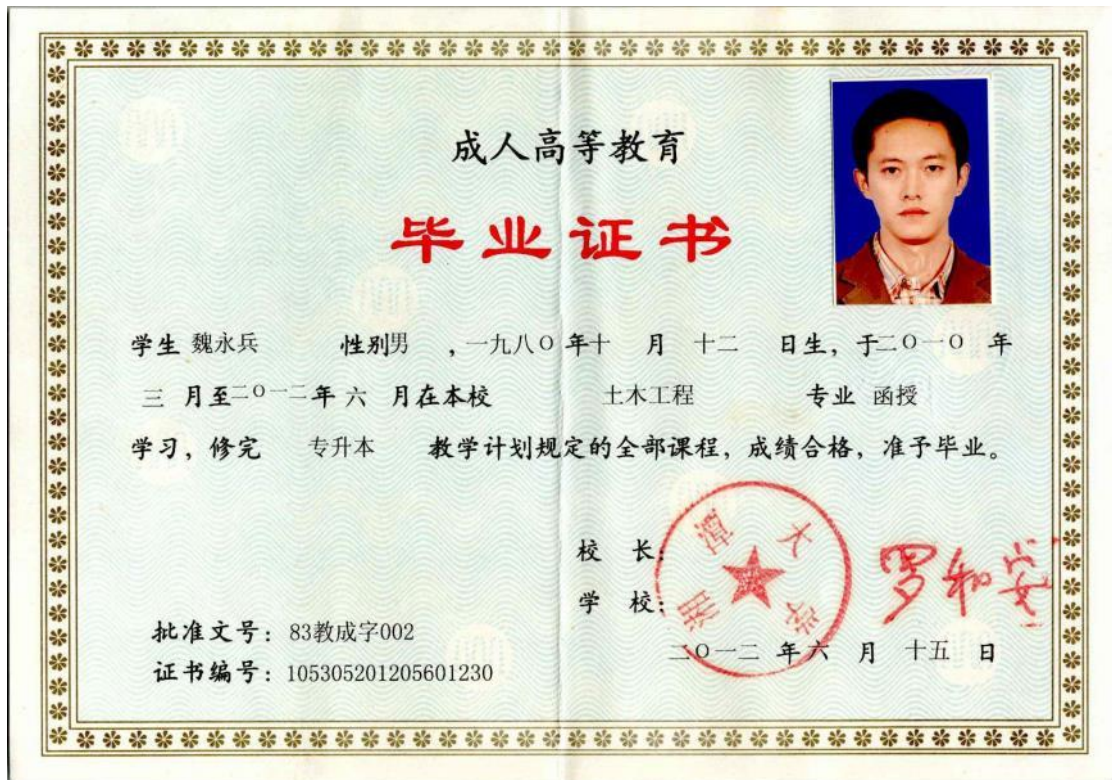 成人高等教育
毕业证书
学生 魏永兵 性别男 ，一九八〇年十 月 十二 日生，于二〇一〇 年
三 月至二〇一二年 六 月在本校 土木工程 专业 函授
学习，修完 专升本 教学计划规定的全部课程，成绩合格，准予毕业。
校 长：
罗和安
学 校：
湘潭大学
二〇一二 年六 月 十五 日
批准文号：83教成字002
证书编号：105305201205601230